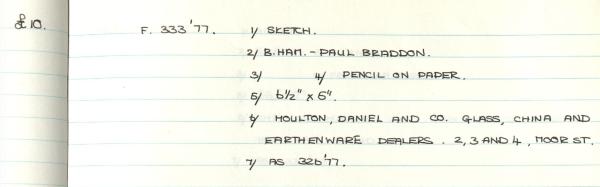 £10. F. 333'77. 1/ SKETCH.
2/ B.HAM. - PAUL BRADDON.
3/ 4/ PENCIL ON PAPER.
5/ 6½" x 6".
6/ HOULTON, DANIEL AND CO. GLASS, CHINA AND
EARTHENWARE DEALERS. 2, 3 AND 4, MOOR ST.
7/ AS 326'77.